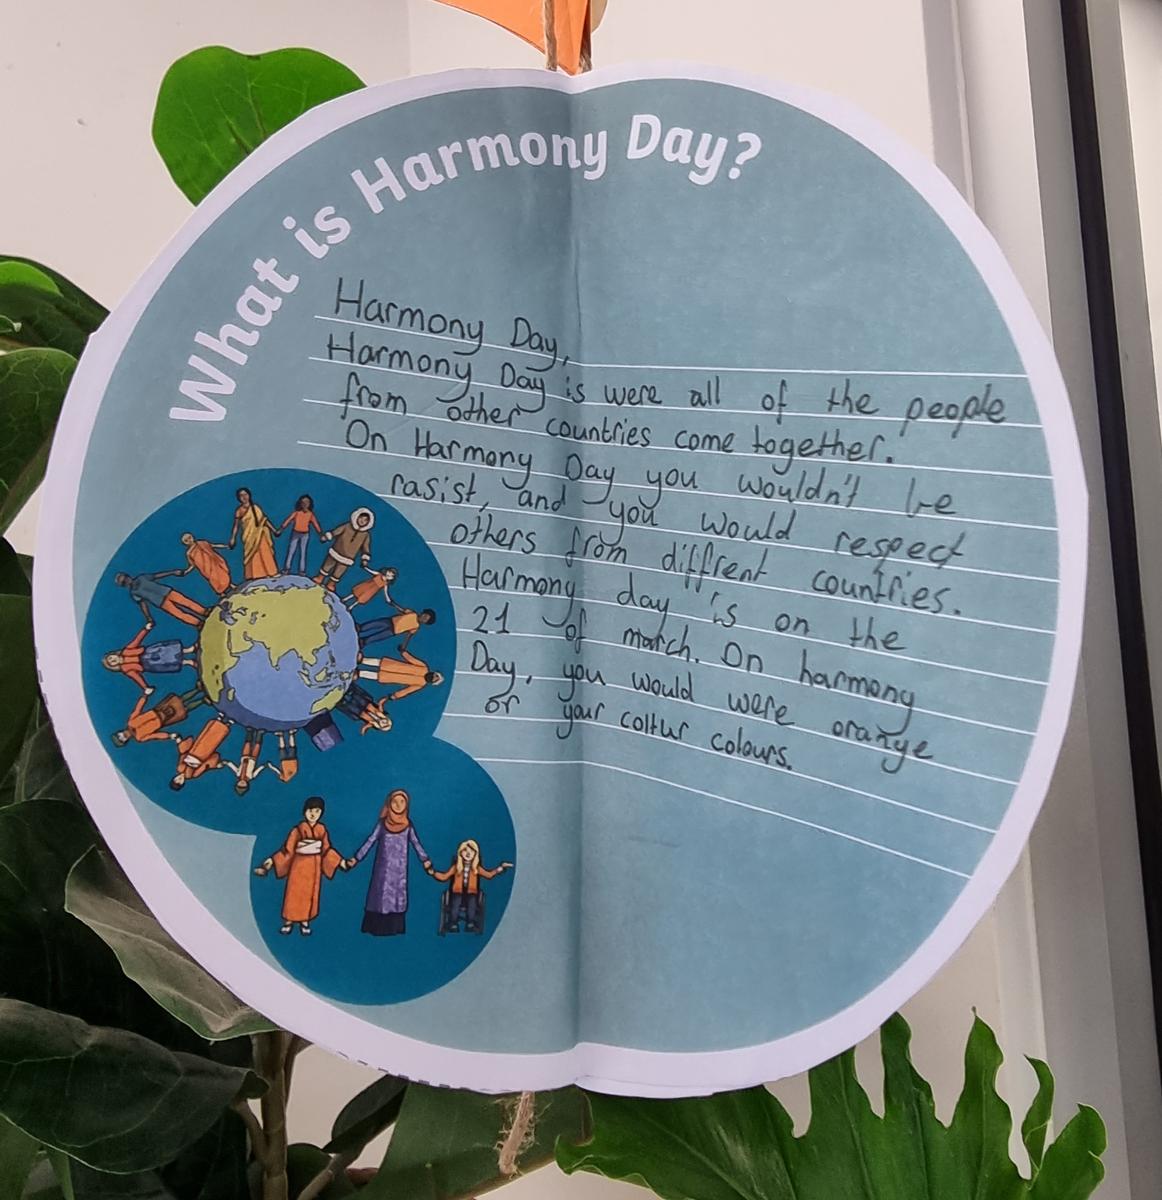 What is Harmony Day?
Harmony Day,
Harmony Day is were all of the people
from other countries come together.
On Harmony Day you wouldn't be
rasist, and you would respect
others from diffrent countries.
Harmony day is on the
21 of march. On harmony
Day, you would were orange
or your coltur colours.